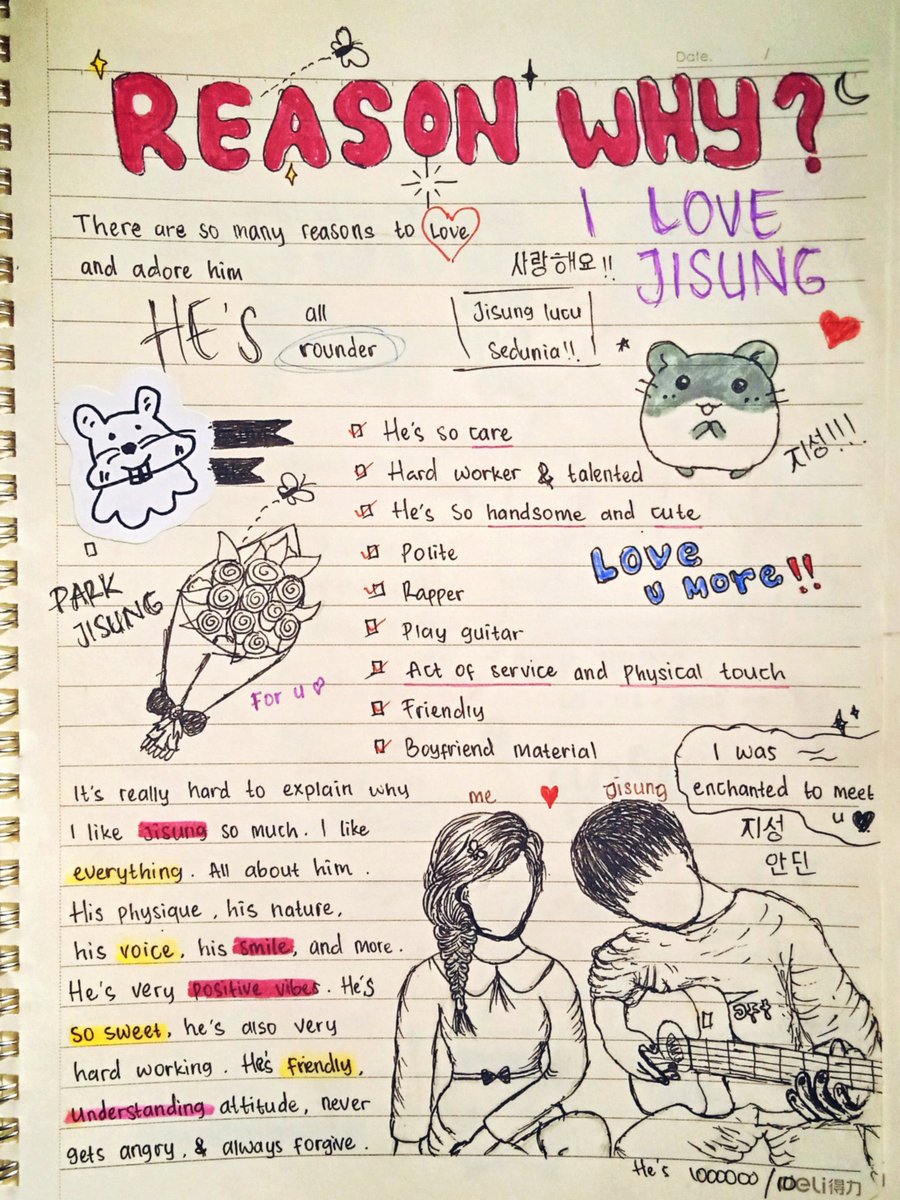 Date. /
REASON WHY?
There are so many reasons to Love
and adore him
I LOVE
JISUNG
사랑해요!!
HE'S all
rounder
Jisung lucu
Sedunia!!
지성!!!
He's so care
Hard worker & talented
He's so handsome and cute
Polite
Rapper
Play guitar
Act of service and Physical touch
Friendly
Boyfriend material
LOVE
U MORE!!
PARK
JISUNG
For u
It's really hard to explain why
I like Jisung so much. I like
everything. All about him.
His physique, his nature,
his voice, his smile, and more.
He's very positive vibes. He's
so sweet, he's also very
hard working. He's friendly,
understanding attitude, never
gets angry, & always forgive.
me
jisung
I was
enchanted to meet
u
지성
안딘
He's 1000000/10
deli得力